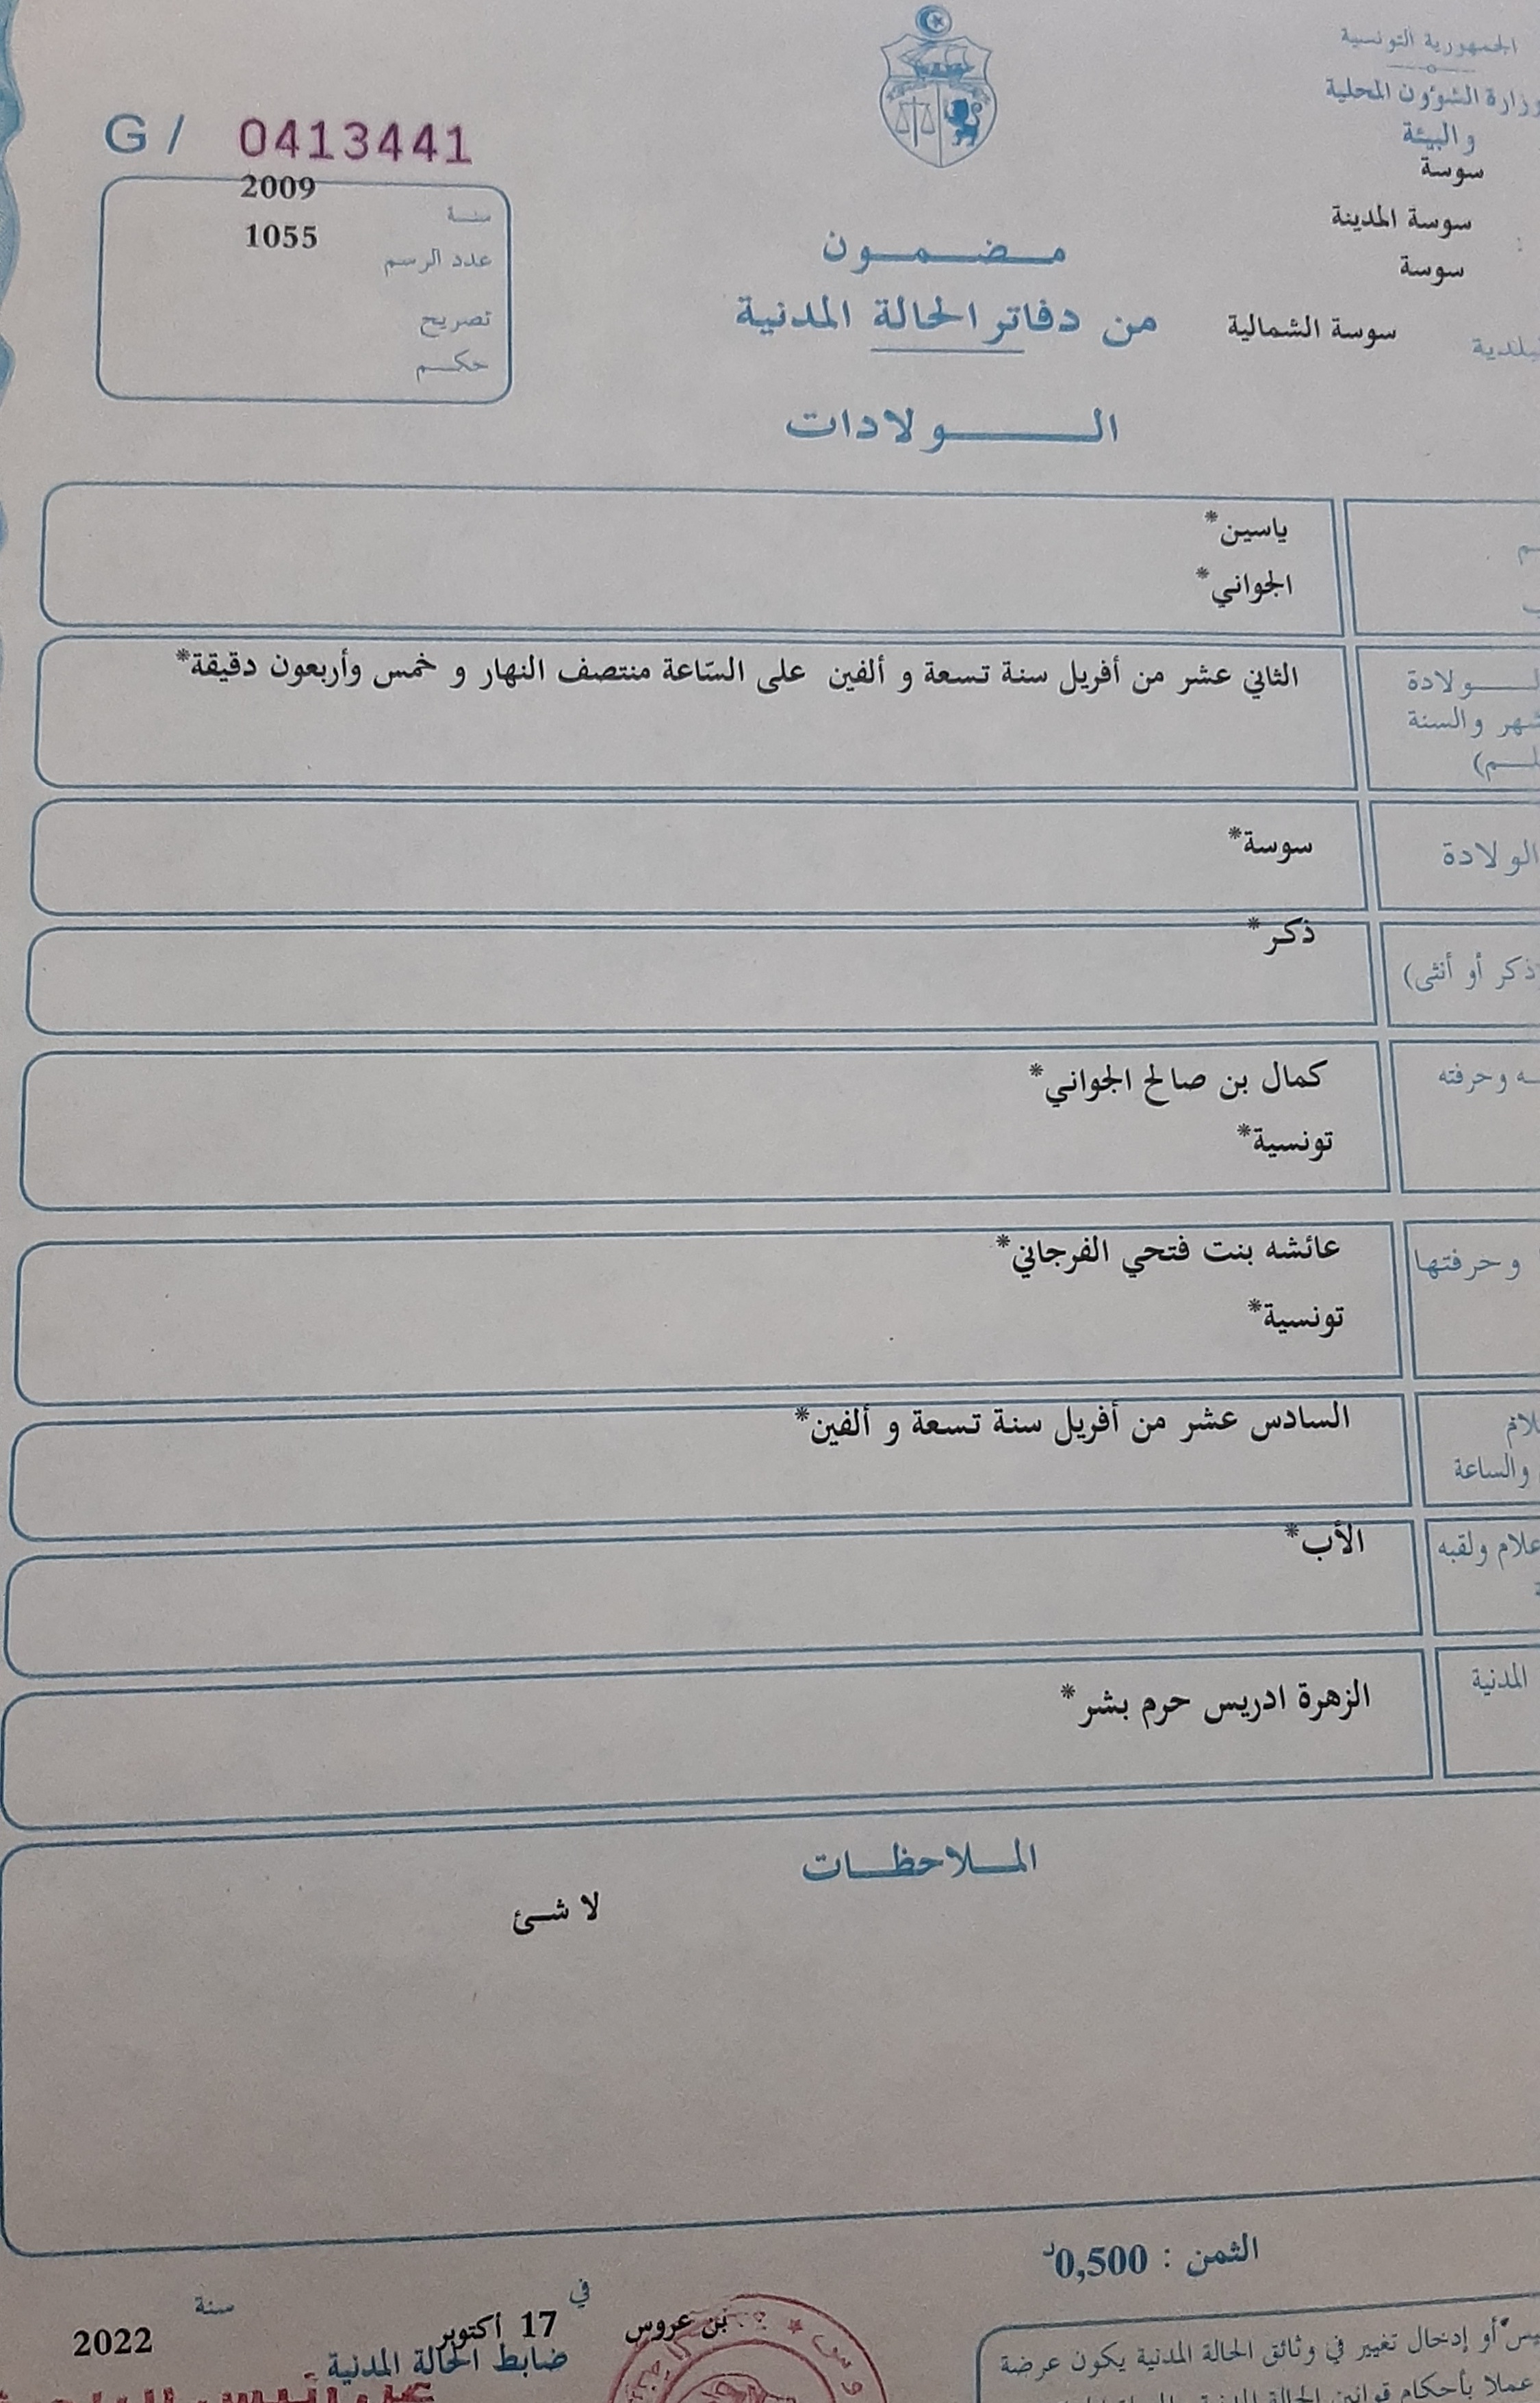 الجمهورية التونسية
وزارة الشؤون المحلية
والبيئة
سوسة
سوسة المدينة
سوسة
سوسة الشمالية
G / 0413441
سنة 2009
عدد الرسم 1055
تصريح
حكم
مضمون
من دفاتر الحالة المدنية
الولادات
ياسين*
الجواني*
الولادة
الثاني عشر من أفريل سنة تسعة و ألفين على السّاعة منتصف النهار و خمس وأربعون دقيقة*
والسنة
الولادة سوسة*
ذكر*
ذكر أو أنثى)
وحرفته كمال بن صالح الجواني*
تونسية*
وحرفتها عائشه بنت فتحي الفرجاني*
تونسية*
السادس عشر من أفريل سنة تسعة و ألفين*
والساعة
ولقبه الأب*
المدنية الزهرة ادريس حرم بشر*
الملاحظات
لا شئ
الثمن : 0,500د
بن عروس في 17 أكتوبر سنة 2022
ضابط الحالة المدنية
أو إدخال تغيير في وثائق الحالة المدنية يكون عرضة
عملا بأحكام قوانين الحالة المدنية